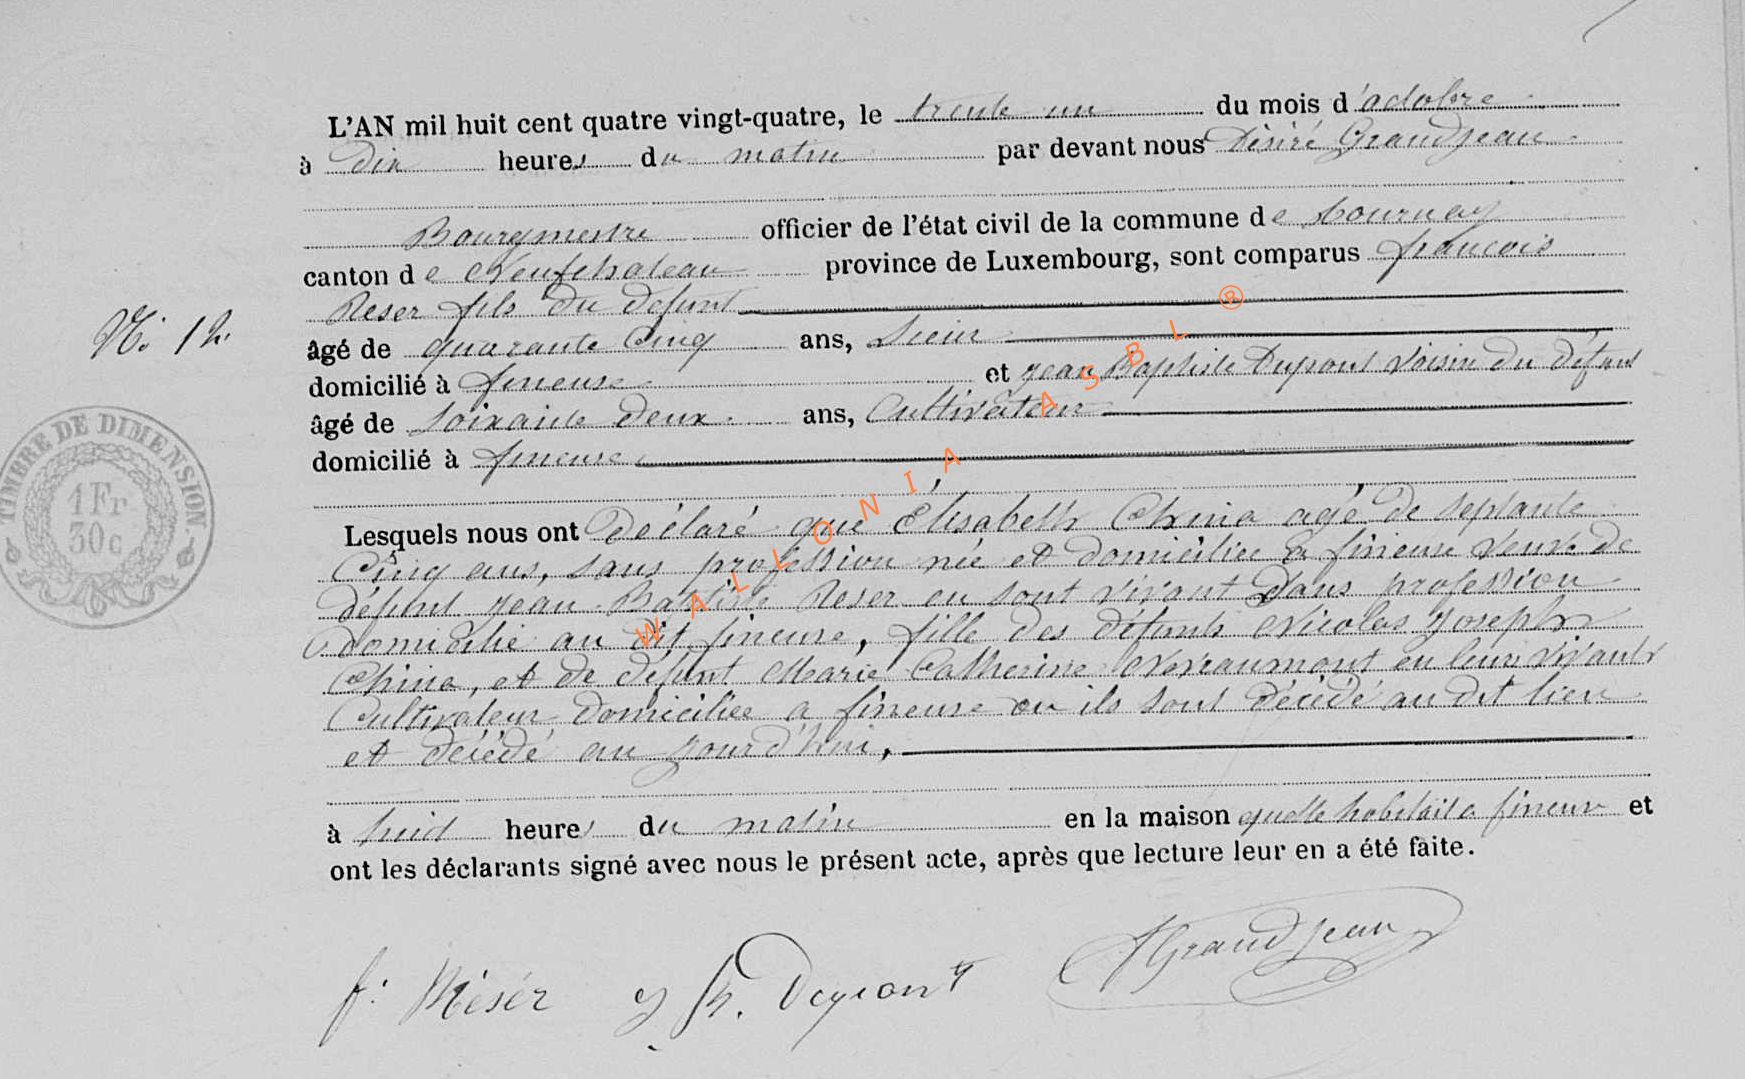 L'AN mil huit cent quatre vingt-quatre, le trente un du mois d'octobre
à dix heures du matin par devant nous Désiré Grandjean
Bourgmestre officier de l'état civil de la commune de tournay
canton de Neufchateau province de Luxembourg, sont comparus francois
Reser fils du defunt
N: 12.
âgé de quarante Cinq ans, Scieur
domicilié à fineuse et jean Baptiste Dupont Voisin du défunt
âgé de soixante deux ans, Cultivateur
domicilié à fineuse
Lesquels nous ont Déclaré que Élisabeth China agé de septante
Cinq ans, sans profession née et domiciliée à fineuse veuve de
défunt jean Baptiste Reser en sont vivant sans profession
domicilié au dit fineuse, fille des défunts Nicolas Joseph
China, et de défunt Marie Catherine Nevraumont en leur vivants
Cultivateur domiciliée a fineuse ou ils sont décédé au dit lieu
et décédé au jourd'hui,
à huit heures du matin en la maison quelle habitait a fineuse et
ont les déclarants signé avec nous le présent acte, après que lecture leur en a été faite.
f: Résér J B. Dupont DGrandjean
TIMBRE DE DIMENSION
1 Fr
30c
WALLONIA ASBL ®